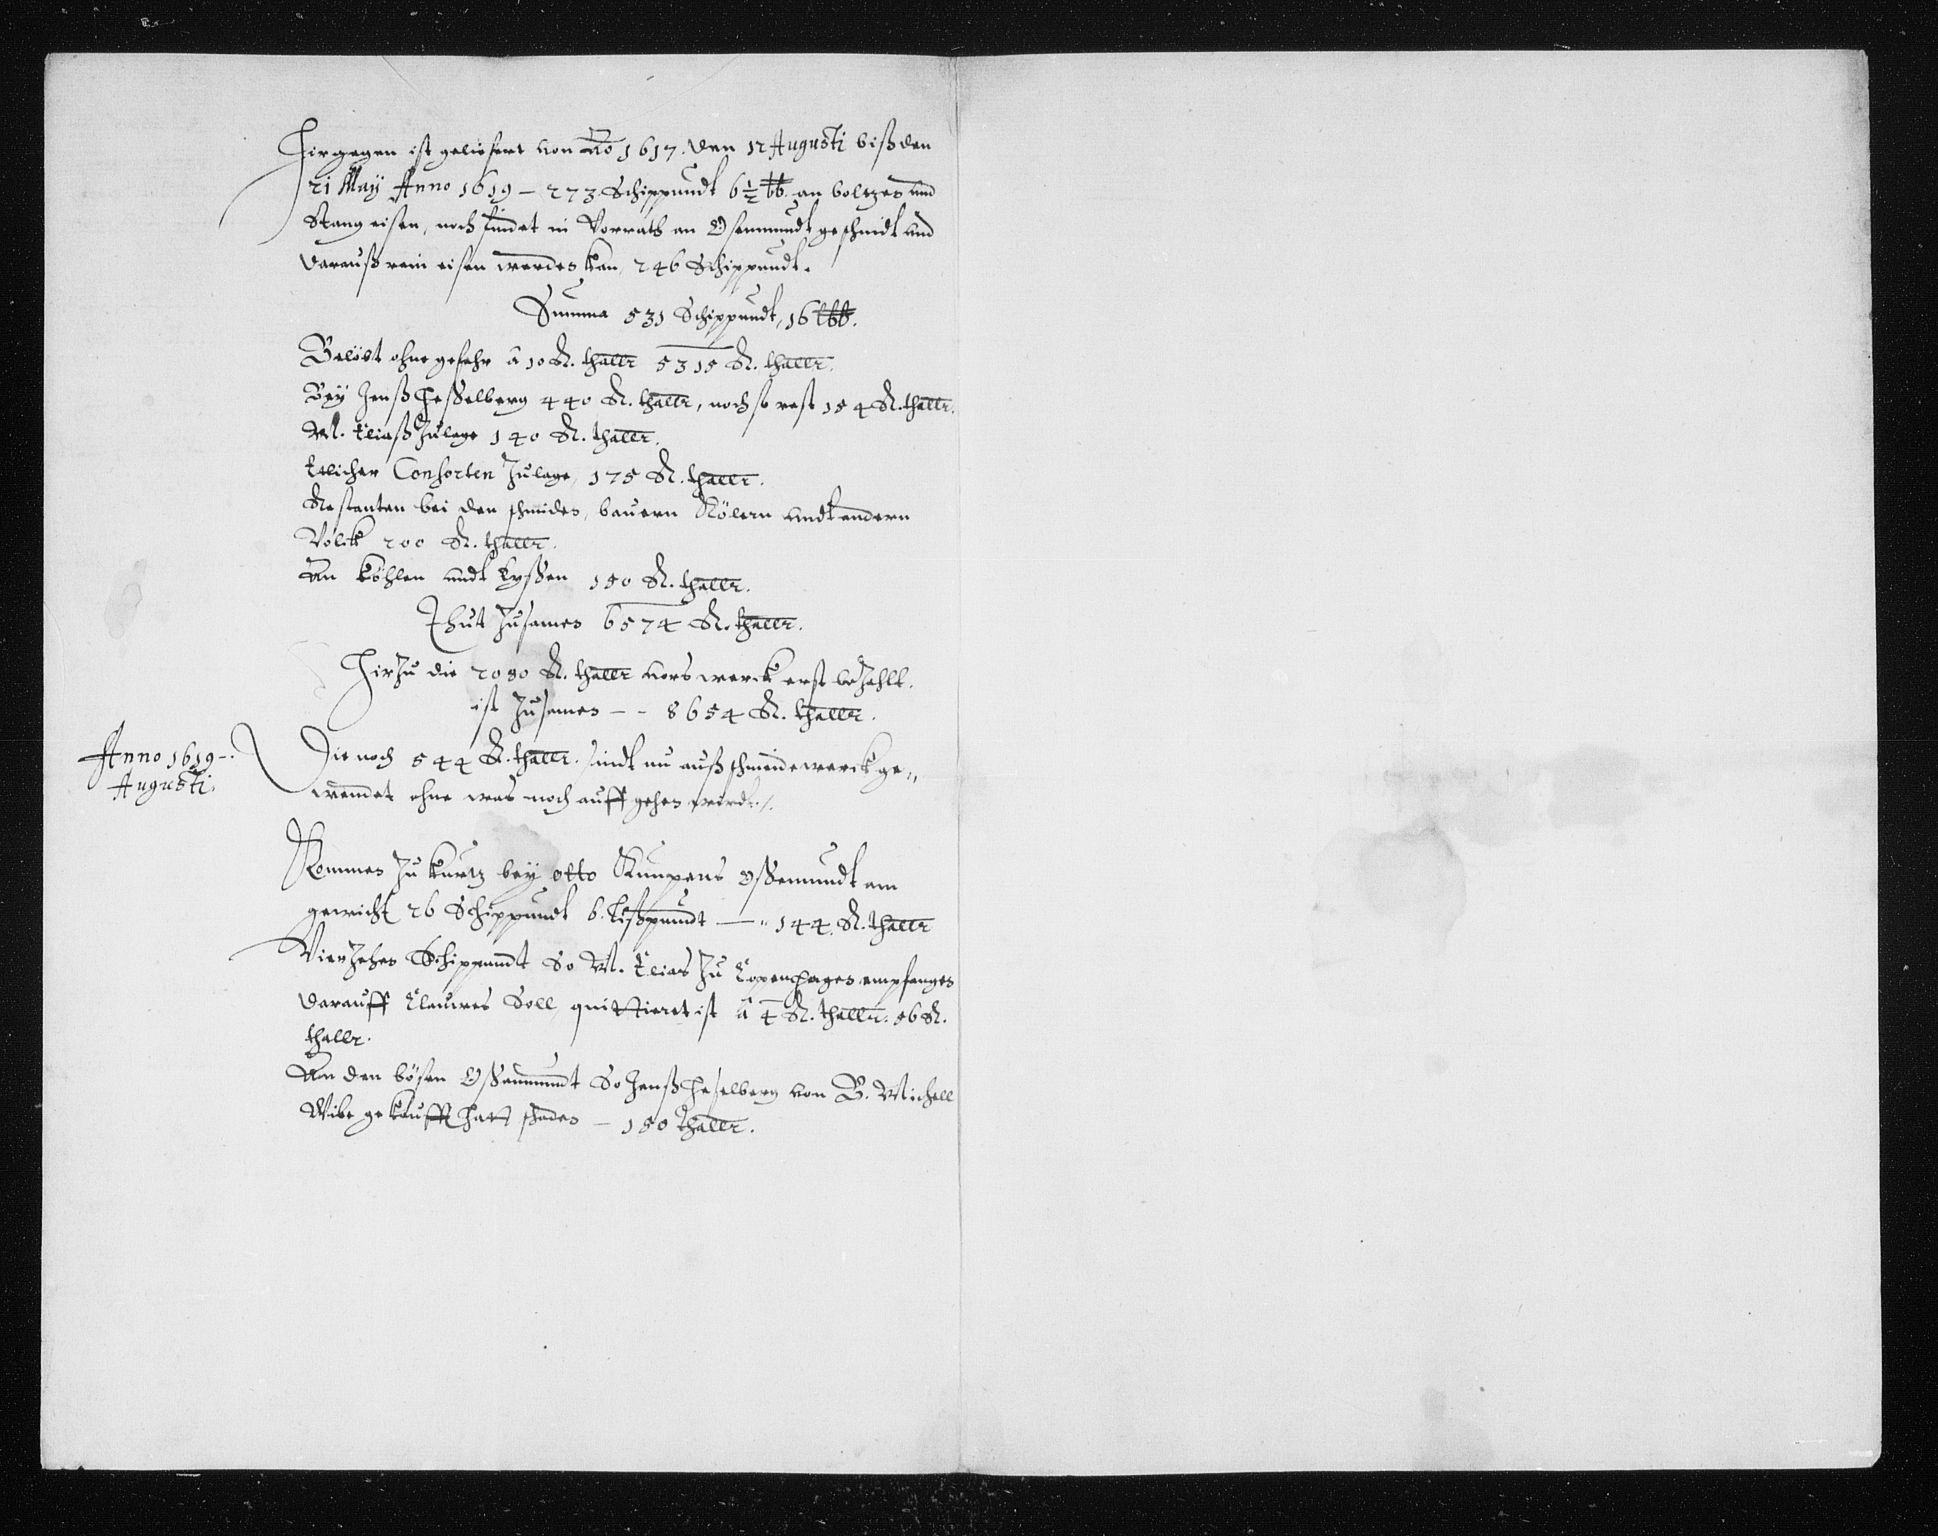 Hirgegen ist geliefert von Ao 1617. den 12 Augusti biß den
21 May Anno 1619 – 273 Schippundt 6½ lb. an boltzen und
Stang eisen, noch findet in Vorrath an Osemundt geschmidt und
darauß rein eisen werden kan, 246 Schippundt.
Summa 531 Schippundt, 16 lbb.
Belövt ohngefehr â 10 R. thallr 5315 R. thallr.
Bey Jenß Heßelberg 440 R. thallr, noch so rest 154 R. thallr.
M. Eliaß Zulage 140 R. thallr.
Etlicher Consorten Zulage, 175 R. thallr.
Restanten bei den schmiden, bauern Kölern undt andern
Volck 200 R. thallr.
An Köhlen undt 150 R. thallr.
Thut Zusamen 6574 R. thallr.
Hirzu die 2080 R. thallr vors werck erst bezahlt.
ist Zusamen – – 8654 R. thallr.
Anno 1619 –.
Augusti.
Die noch 544 R. thallr. sindt nu auß schmidewerck ge„
wendet ohne was noch auff gehen wirdt./.
Kommen Zu kurtz bey Otto Osßemundt am
gewicht 26 Schippundt 6. Lißpundt — „ 144. R. thallr
Vierzehen Schippundt So M. Elias Zu Copenhagen empfangen
darauff Claures Soll quittieret ist â 4 R. thallr. 56 R.
thallr.
An den bösen Osßemundt So Jenß Heselberg von B. Michell
Wibe gekaufft hatt schaden – 150 thallr.